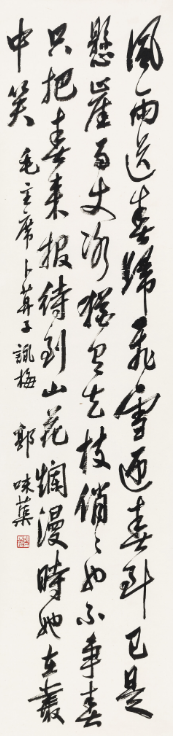 風雨送春歸飛雪迎春到已是
懸崖百丈冰猶有花枝俏々也不爭春
只把春來報待到山花爛漫時她在叢
中笑 毛主席卜算子詠梅 郭味蕖